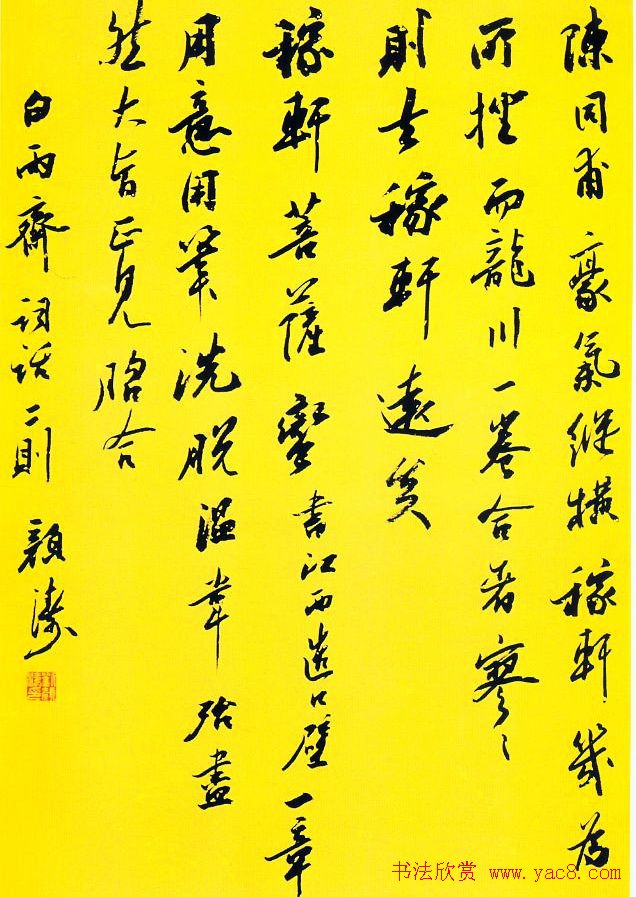 陳同甫豪氣縱横稼軒幾為
所挫而龍川一卷合者寥〻
則去稼軒遠矣
稼軒菩薩蠻書江西造口壁一章
用意用筆洗脱温韋殆盡
然大旨正見脗合
白雨齋词话二則 顔濤
书法欣赏 www.yac8.com